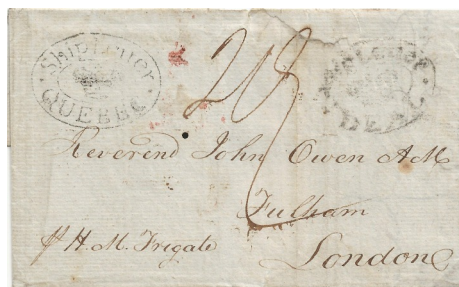 Ship Letter
QUEBEC
Ship Letter
DEAL
Reverend John Owen AM
Fulham
London
pr H. M. Frigate